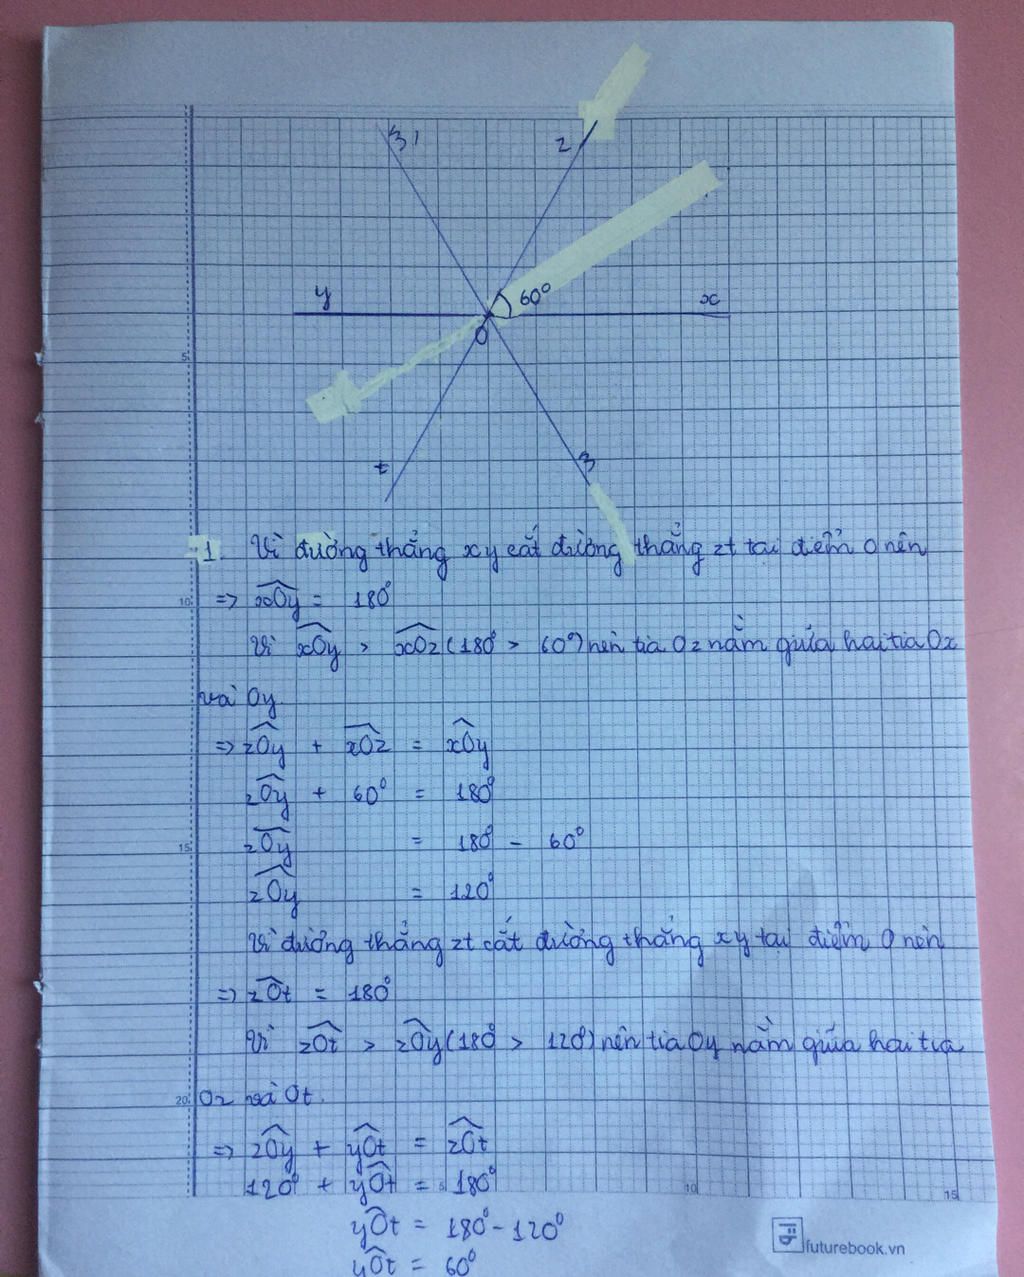 3'
z
y
60°
x
O
t
3
5
1. Vì đường thẳng xy cắt đường thẳng zt tại điểm O nên
10
=> xOy = 180°
Vì xOy > xOz (180° > 60°) nên tia Oz nằm giữa hai tia Ox
và Oy
=> zOy + xOz = xOy
zOy + 60° = 180°
15
zOy = 180° - 60°
zOy = 120°
Vì đường thẳng zt cắt đường thẳng xy tại điểm O nên
=> zOt = 180°
Vì zOt > zOy (180° > 120°) nên tia Oy nằm giữa hai tia
20
Oz và Ot.
=> zOy + yOt = zOt
120° + yOt = 180°
5
10
15
yOt = 180° - 120°
yOt = 60°
futurebook.vn